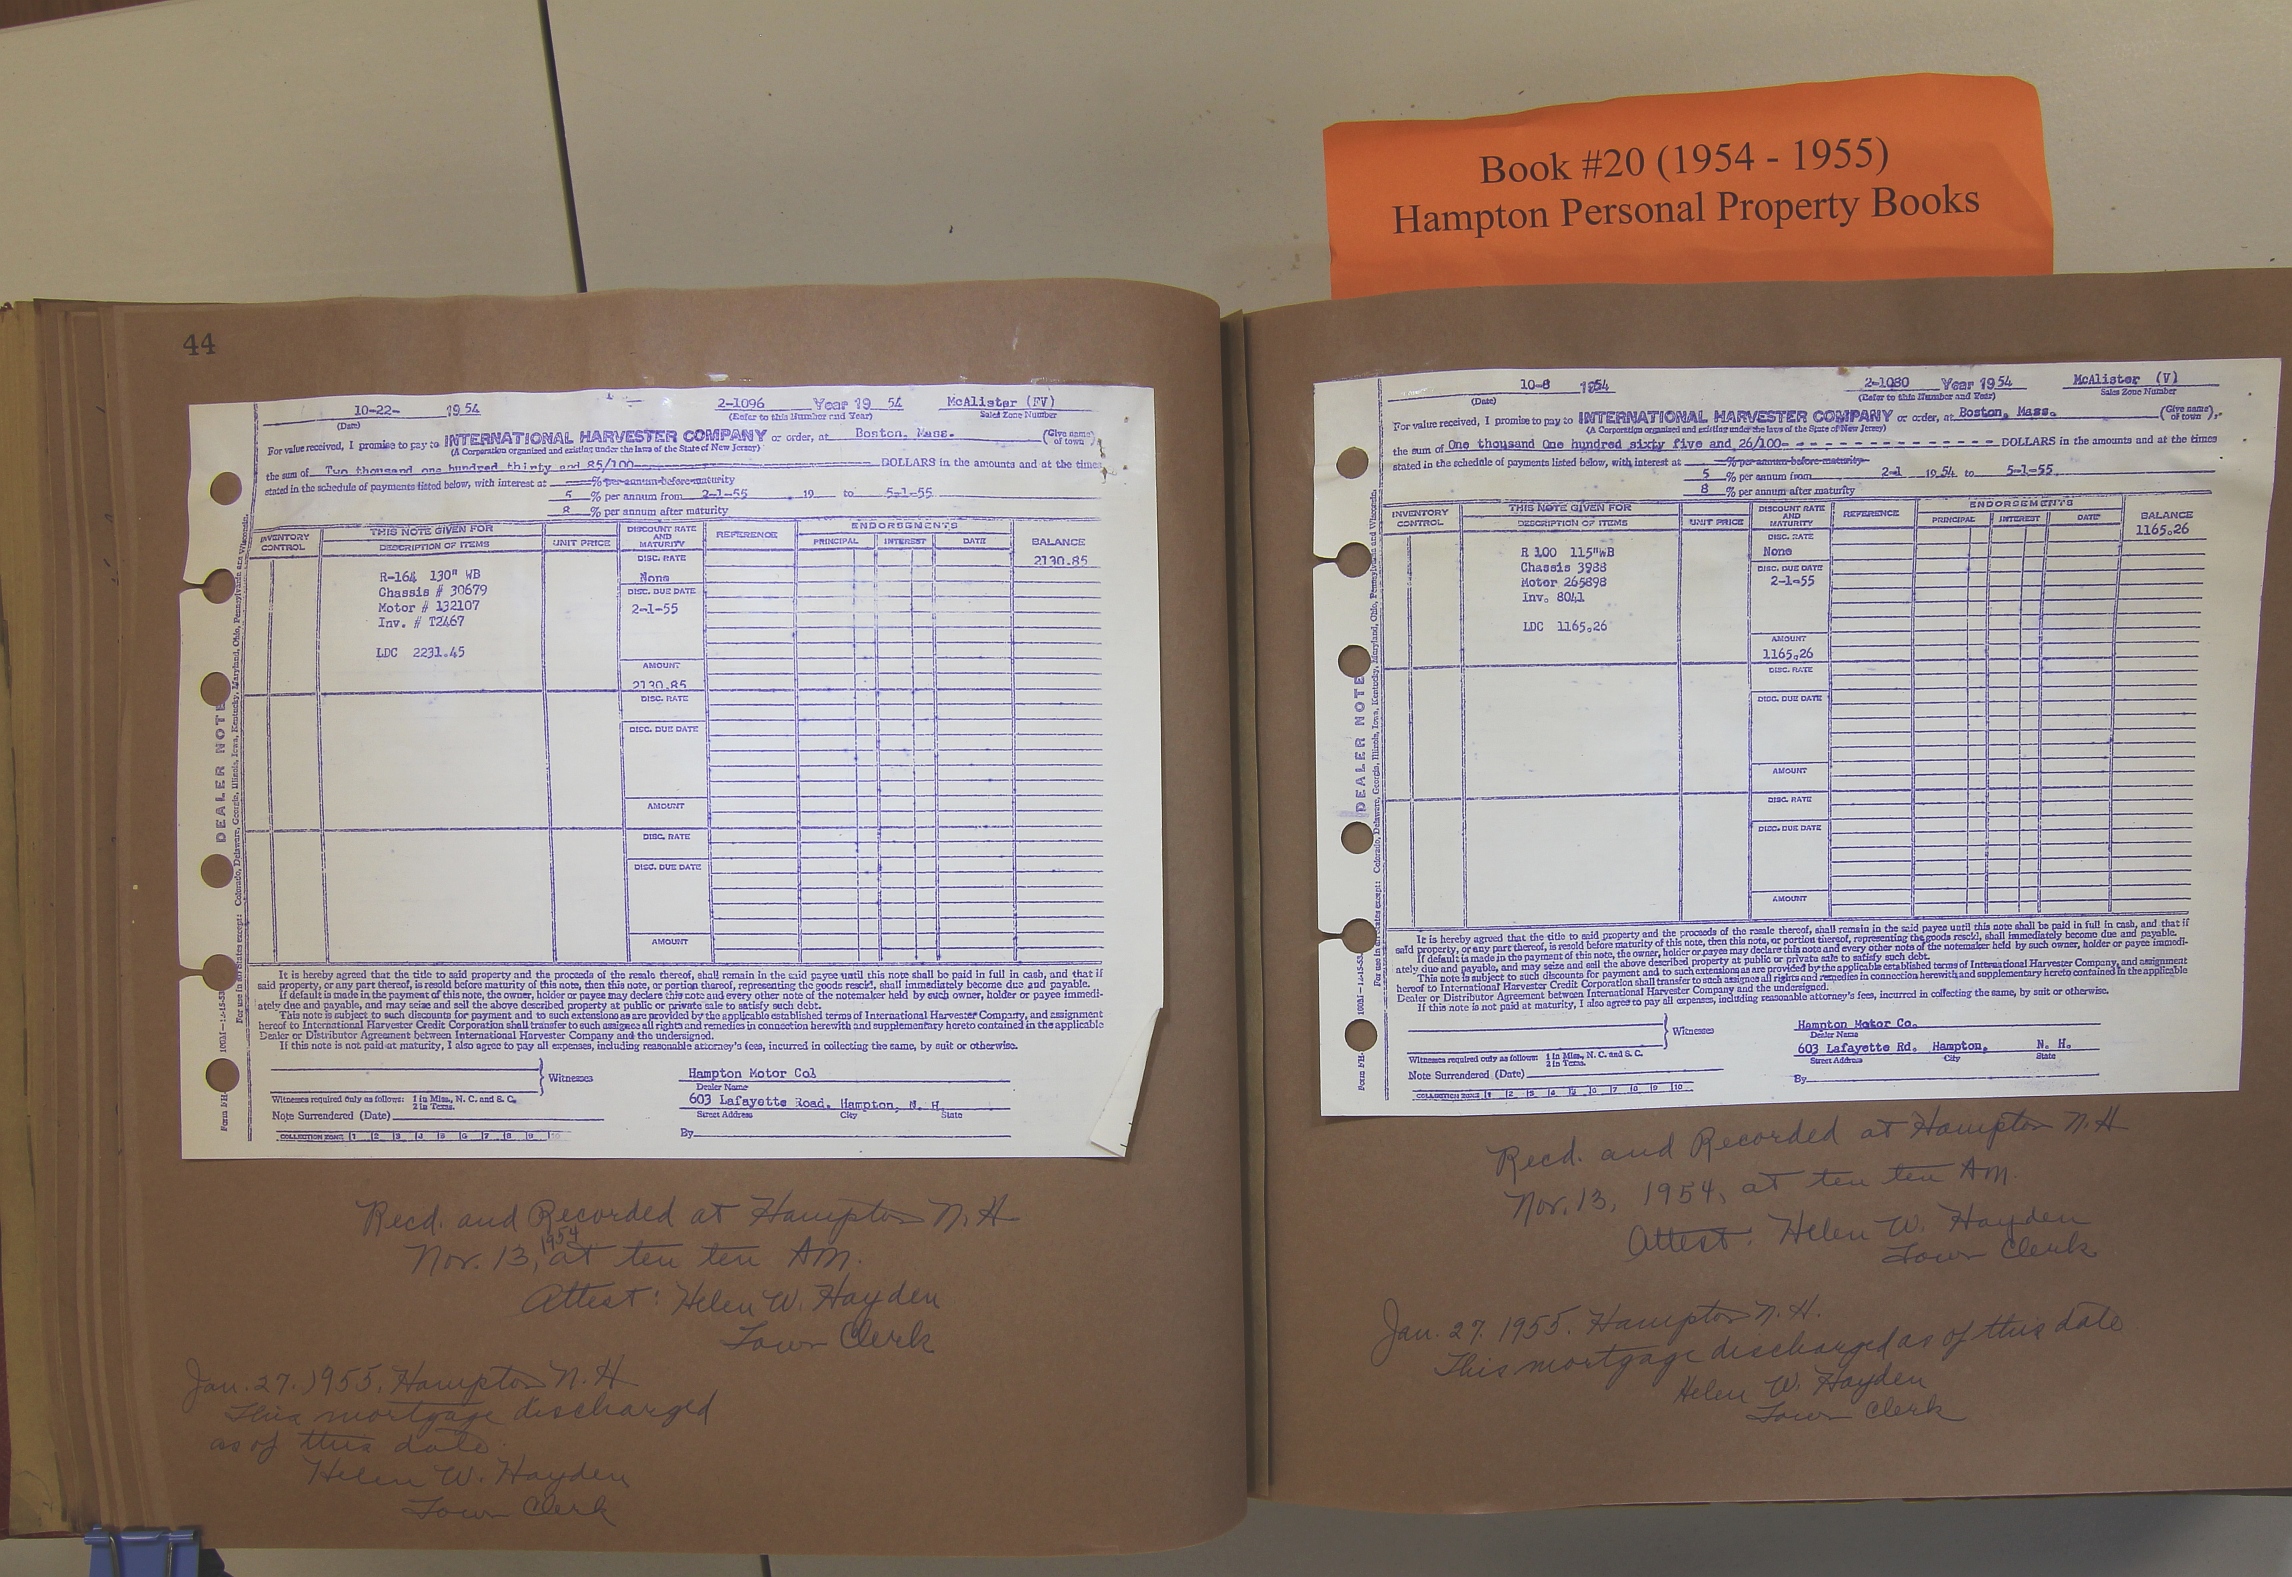 Book #20 (1954 - 1955)
Hampton Personal Property Books
44
10-22- 1954 2-1096 Year 19 54 McAlister (FV)
(Date) (Refer to this Number and Year) Sales Zone Number
For value received, I promise to pay to INTERNATIONAL HARVESTER COMPANY or order, at Boston, Mass. (Give name of town),
(A Corporation organized and existing under the laws of the State of New Jersey)
the sum of Two thousand one hundred thirty and 85/100 DOLLARS in the amounts and at the times
stated in the schedule of payments listed below, with interest at % per annum before maturity
5 % per annum from 2-1-55 19 to 5-1-55
8 % per annum after maturity
INVENTORY CONTROL THIS NOTE GIVEN FOR DISCOUNT RATE AND MATURITY REFERENCE ENDORSEMENTS BALANCE
DESCRIPTION OF ITEMS UNIT PRICE PRINCIPAL INTEREST DATE
DISC. RATE 2130.85
R-164 130" WB None
Chassis # 30679 DISC. DUE DATE
Motor # 132107 2-1-55
Inv. # T2467
LDC 2231.45
AMOUNT
2130.85
DISC. RATE
DISC. DUE DATE
AMOUNT
DISC. RATE
DISC. DUE DATE
AMOUNT
It is hereby agreed that the title to said property and the proceeds of the resale thereof, shall remain in the said payee until this note shall be paid in full in cash, and that if
said property, or any part thereof, is resold before maturity of this note, then this note, or portion thereof, representing the goods resold, shall immediately become due and payable.
If default is made in the payment of this note, the owner, holder or payee may declare this note and every other note of the notemaker held by such owner, holder or payee immedi-
ately due and payable, and may seize and sell the above described property at public or private sale to satisfy such debt.
This note is subject to such discounts for payment and to such extensions as are provided by the applicable established terms of International Harvester Company, and assignment
hereof to International Harvester Credit Corporation shall transfer to such assignee all rights and remedies in connection herewith and supplementary hereto contained in the applicable
Dealer or Distributor Agreement between International Harvester Company and the undersigned.
If this note is not paid at maturity, I also agree to pay all expenses, including reasonable attorney's fees, incurred in collecting the same, by suit or otherwise.
Witnesses
Hampton Motor Col
Dealer Name
Witnesses required only as follows: 1 in Miss., N. C. and S. C.
2 in Texas.
603 Lafayette Road, Hampton, N. H.
Street Address City State
Note Surrendered (Date)
By
COLLECTION ZONE 1 2 3 4 5 6 7 8 9 10
DEALER NOTE
For use in all states except: Colorado, Delaware, Georgia, Illinois, Iowa, Kentucky, Maryland, Ohio, Pennsylvania and Wisconsin.
Recd. and Recorded at Hampton N.H
Nov. 13, 1954 at ten ten AM.
Attest: Helen W. Hayden
Town Clerk
Jan. 27. 1955, Hampton N.H
This mortgage discharged
as of this date.
Helen W. Hayden
Town Clerk
10-8 1954 2-1080 Year 1954 McAlister (V)
(Date) (Refer to this Number and Year) Sales Zone Number
For value received, I promise to pay to INTERNATIONAL HARVESTER COMPANY or order, at Boston, Mass. (Give name of town),
(A Corporation organized and existing under the laws of the State of New Jersey)
the sum of One thousand One hundred sixty five and 26/100 DOLLARS in the amounts and at the times
stated in the schedule of payments listed below, with interest at % per annum before maturity
5 % per annum from 2-1 1954 to 5-1-55
8 % per annum after maturity
INVENTORY CONTROL THIS NOTE GIVEN FOR DISCOUNT RATE AND MATURITY REFERENCE ENDORSEMENTS BALANCE
DESCRIPTION OF ITEMS UNIT PRICE PRINCIPAL INTEREST DATE
DISC. RATE 1165.26
R 100 115"WB None
Chassis 3988 DISC. DUE DATE
Motor 265898 2-1-55
Inv. 8041
LDC 1165.26
AMOUNT
1165.26
DISC. RATE
DISC. DUE DATE
AMOUNT
DISC. RATE
DISC. DUE DATE
AMOUNT
It is hereby agreed that the title to said property and the proceeds of the resale thereof, shall remain in the said payee until this note shall be paid in full in cash, and that if
said property, or any part thereof, is resold before maturity of this note, then this note, or portion thereof, representing the goods resold, shall immediately become due and payable.
If default is made in the payment of this note, the owner, holder or payee may declare this note and every other note of the notemaker held by such owner, holder or payee immedi-
ately due and payable, and may seize and sell the above described property at public or private sale to satisfy such debt.
This note is subject to such discounts for payment and to such extensions as are provided by the applicable established terms of International Harvester Company, and assignment
hereof to International Harvester Credit Corporation shall transfer to such assignee all rights and remedies in connection herewith and supplementary hereto contained in the applicable
Dealer or Distributor Agreement between International Harvester Company and the undersigned.
If this note is not paid at maturity, I also agree to pay all expenses, including reasonable attorney's fees, incurred in collecting the same, by suit or otherwise.
Witnesses
Hampton Motor Co.
Dealer Name
Witnesses required only as follows: 1 in Miss., N. C. and S. C.
2 in Texas.
603 Lafayette Rd. Hampton, N. H.
Street Address City State
Note Surrendered (Date)
By
COLLECTION ZONE 1 2 3 4 5 6 7 8 9 10
DEALER NOTE
Recd. and Recorded at Hampton N.H
Nov. 13, 1954, at ten ten AM.
Attest: Helen W. Hayden
Town Clerk
Jan. 27. 1955. Hampton N.H.
This mortgage discharged as of this date
Helen W. Hayden
Town Clerk